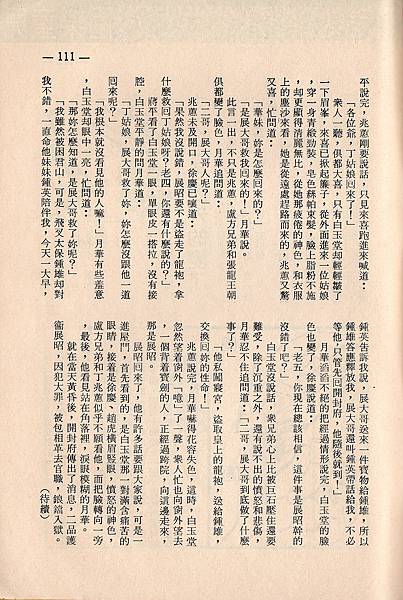 — 111 —
平說完，兆蕙剛要說話，只見來喜跑進來喊道：
「各位爺，丁姑娘回來了！」
衆人一聽，俱都大喜，只有白玉堂却輕輕皺了
一下眉峯，來喜已掀起簾子，從外面進來一位姑娘
，穿一身青緞勁裝，皂色絲帕束髮，臉上脂粉不施
，却更顯得清麗無比，從她那疲倦的神色，和衣服
上的塵沙來看，她是從遠處趕路而來的，兆蕙又驚
又喜，忙問道：
「華妹，妳是怎麼回來的？」
「是展大哥救我回來的！」月華說。
此言一出，不只是兆蕙，盧方兄弟和張龍王朝
俱都變了臉色，月華追問道：
「二哥，展大哥人呢？」
兆蕙未及開口，徐慶已嚷道：
「果然我沒猜錯，展昭要不是盜走了龍袍，拿
什麼救回了丁姑娘呢？老四，你還有什麼說的？」
蔣平看了白玉堂一眼，單眼皮一搭拉，沒有接
腔，白玉堂平靜的問月華道：
「丁姑娘，展大哥救了妳，妳怎麼沒跟他一道
回來呢？」
「我根本就沒看見他的人嘛！」月華有些羞意
，白玉堂却眼中一亮，忙問道：
「那妳怎麼知道，是展大哥救了妳呢？」
「我雖然被困君山，可是，飛叉太保鍾雄却對
我不錯，一直命他妹妹鍾英陪伴我，今天一大早，
鍾英告訴我說，展大哥送來一件寶物給鍾雄，所以
鍾雄答應釋放我，展大哥還叫鍾英帶話給我，不必
等他，只管先回開封府，他隨後就到！」
月華滔滔不絕的把經過情形說完，白玉堂的臉
色也變了，徐慶說道：
「老五，你現在總該相信，這件事是展昭幹的
沒錯了吧？」
白玉堂沒說話，衆兄弟心上比被巨石壓住還要
難受，除了沉重之外，還有說不出的憤怒和悲傷，
月華忍不住追問道：「二哥，展大哥到底做了什麼
事了？」
「他私闖寢宮，盜取皇上的龍袍，送給鍾雄，
交換回妳的性命！」
兆蕙說完，月華嚇得花容失色，這時，白玉堂
忽然望着窗外「噫」了一聲，衆人忙也向窗外望去
，一個背着寶劍的人，正經過跨院，向這邊走來，
那是展昭。
展昭回來了，他有許多話要跟大家說，可是一
進屋門，首先看到的，是白玉堂那一對滿含痛苦的
眼睛，接着是徐慶、趙虎橫眉豎眼，憤怒的神色，
盧方兄弟和丁兆蕙似乎不願看他，而把臉轉向一旁
，最後，他看見站在角落裡，淚眼模糊的月華。
就在當天黃昏後，開封府傳出了消息，二品護
衞展昭，因犯大罪，被包相革去官職，鋃鐺入獄。
（待續）